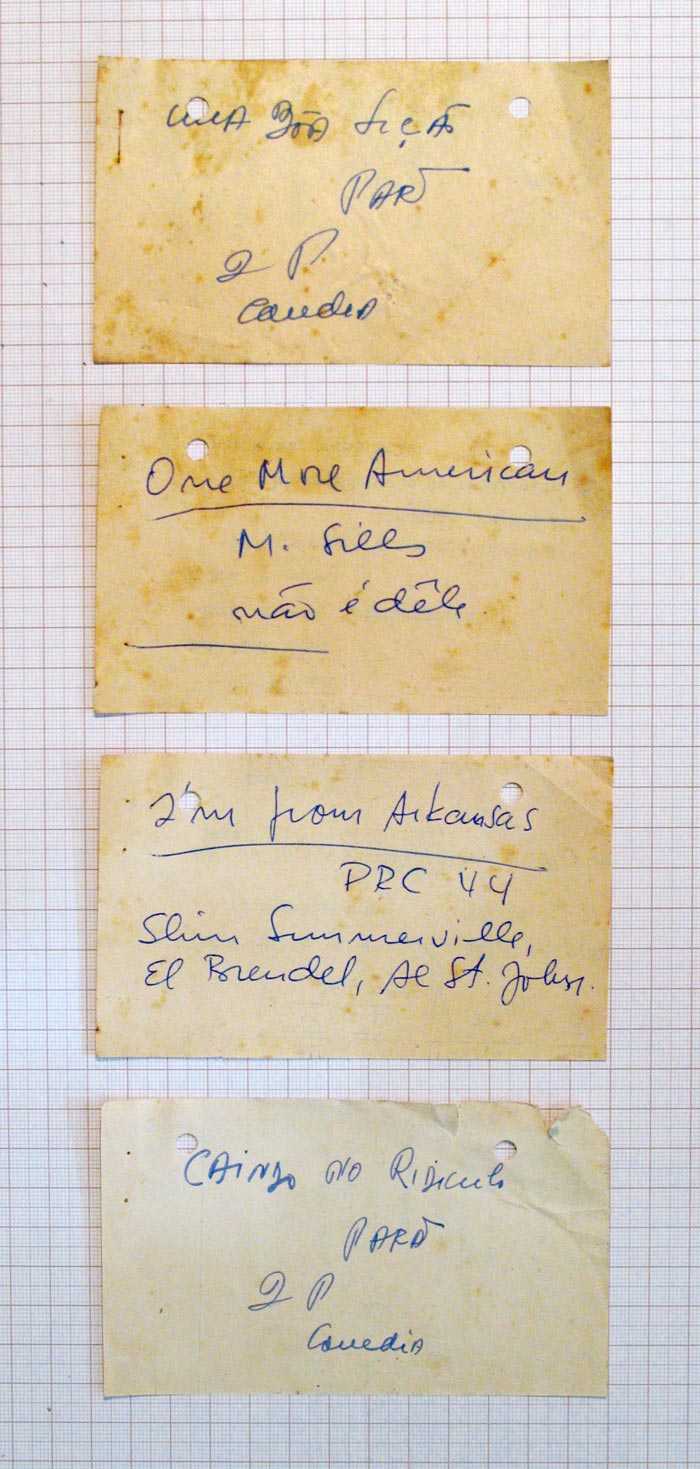 UMA BÔA LIÇÃO
PARÁ
2 P
Comedia
One More American
M. Sills
não é dêle
I'm from Arkansas
PRC 44
Slim Summerville,
El Brendel, Al St. John.
CAINDO NO RIDICULO
PARÁ
2 P
Comedia